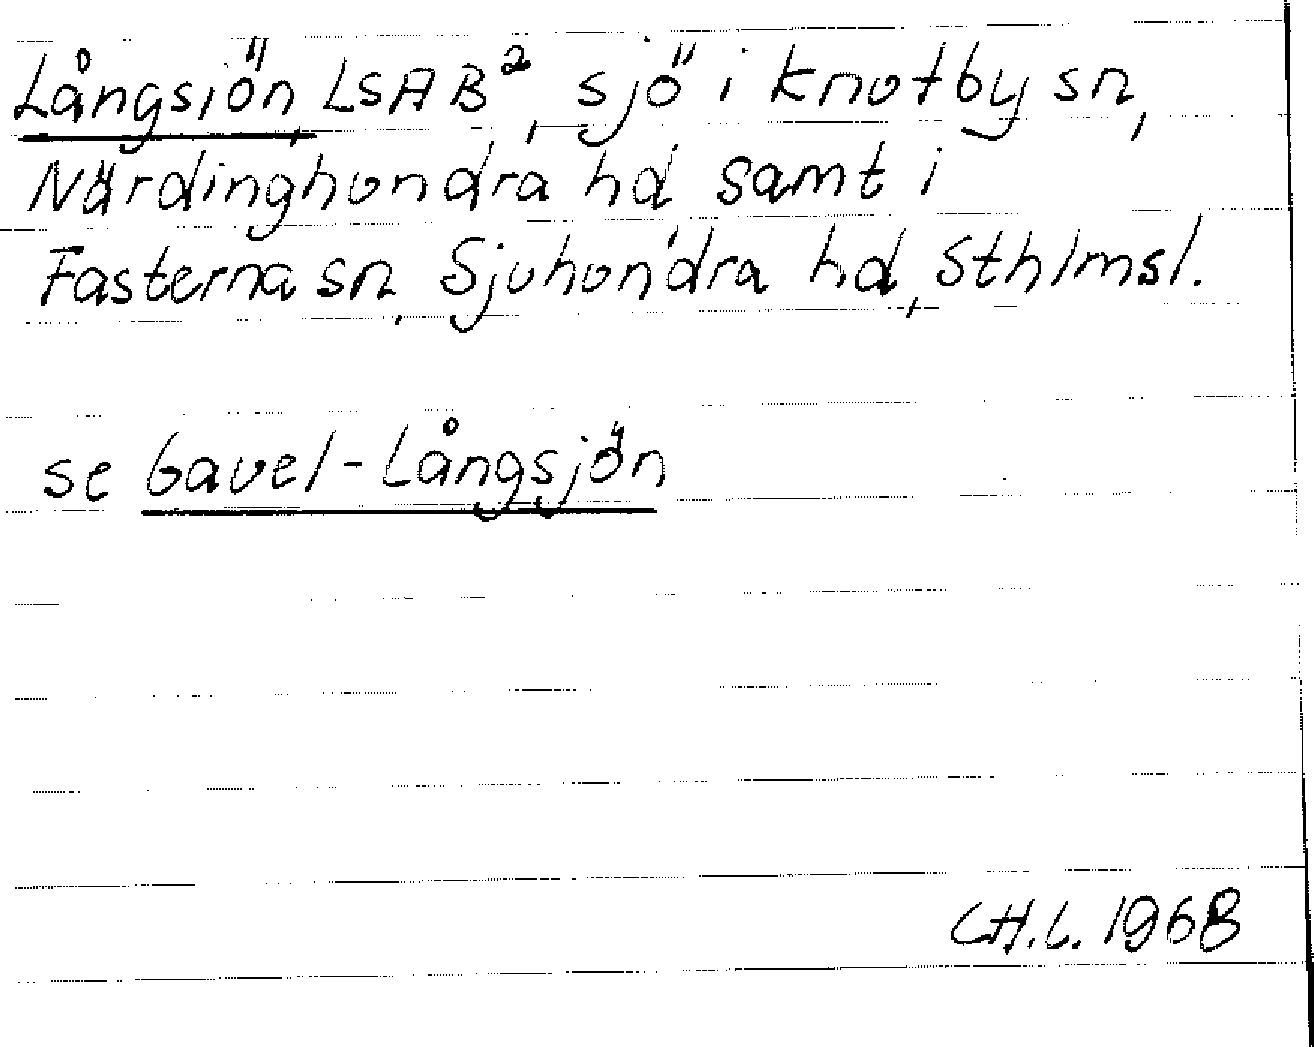 Långsiön, LSAB², sjö i Knutby sn,
Närdinghundra hd samt i
Fasterna sn, Sjuhundra hd, Sthlmsl.
se Gavel-Långsjön
CH.L. 1968